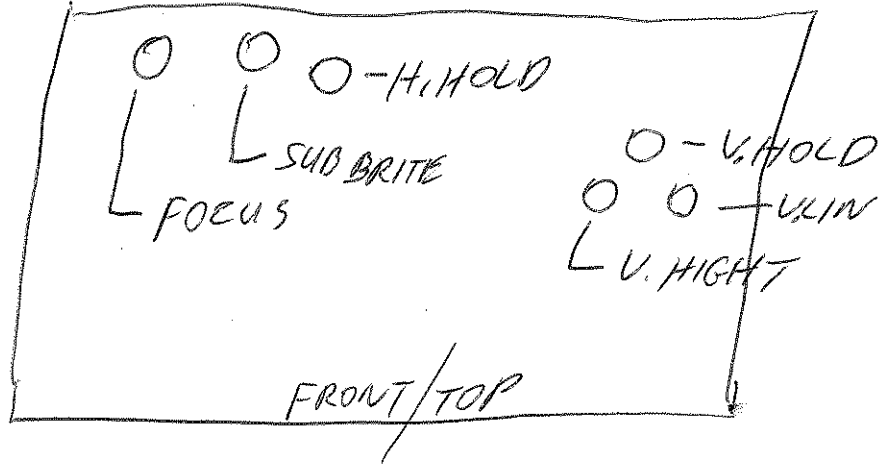 -H.HOLD
SUB BRITE
FOCUS
-V.HOLD
-V.LIN
V.HIGHT
FRONT/TOP